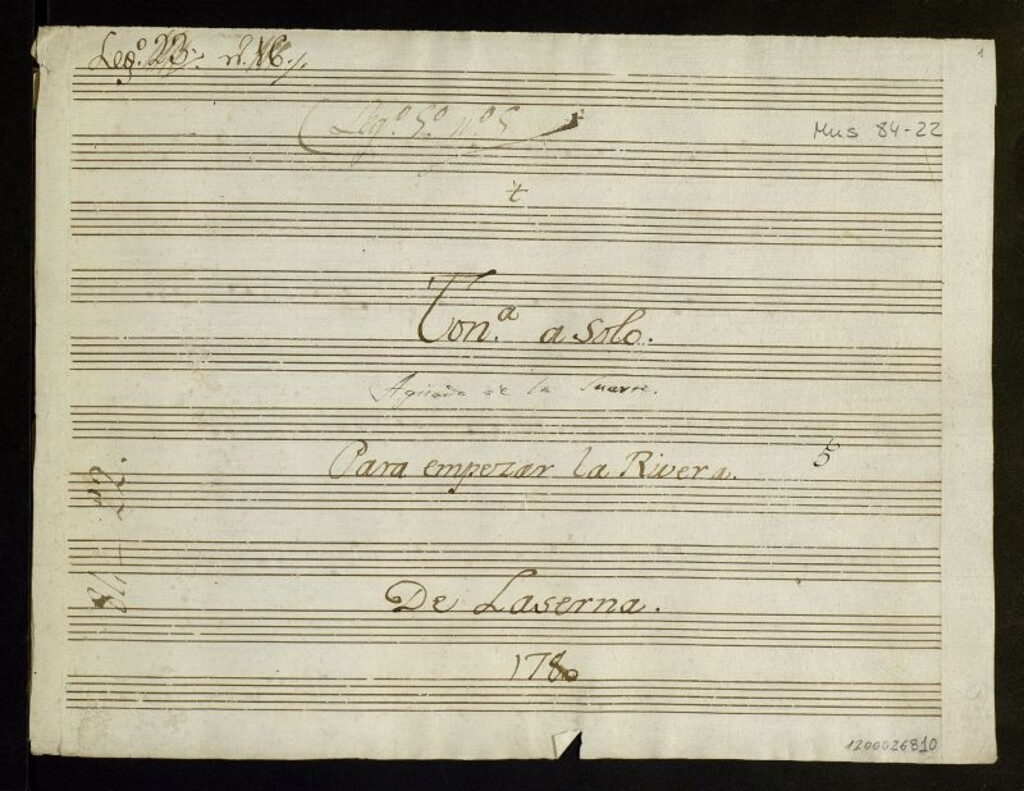 1
Leg.º 23. n. 16.
Leg.º 5.º n.º 5
Mus 84-22
t
Ton.ª a solo.
de la
Para empezar la Rivera.
5
De Laserna.
1780
84-22.
1200026810